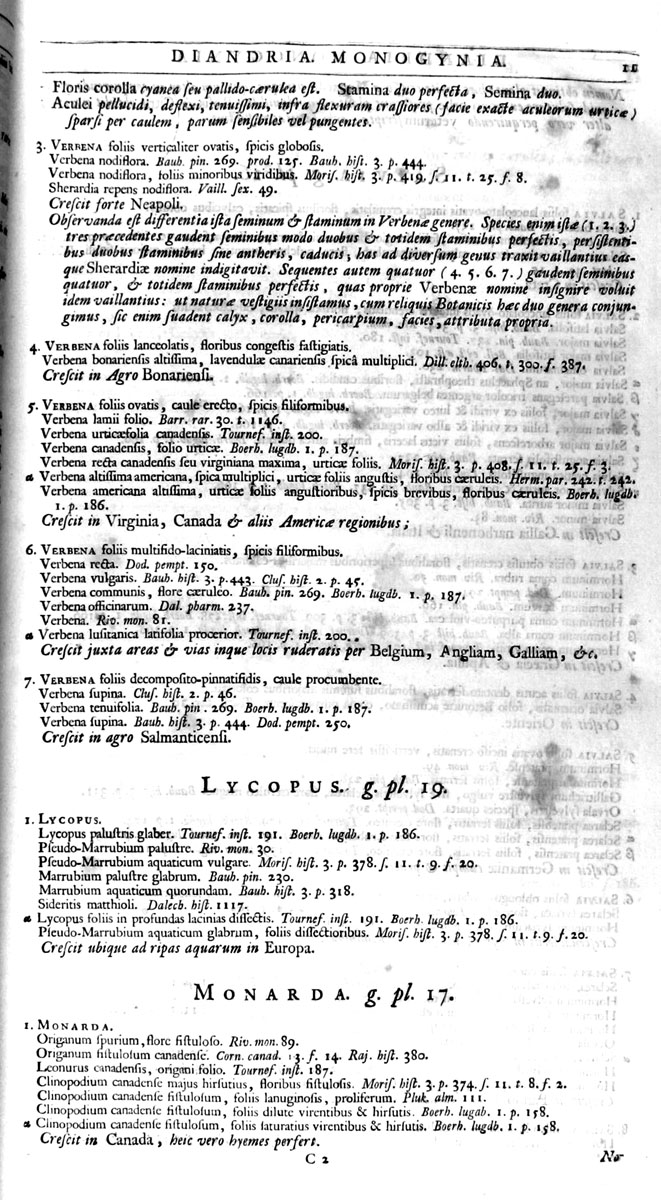 DIANDRIA. MONOGYNIA. 11
Floris corolla cyanea ſeu pallido-cærulea eſt. Stamina duo perfecta, Semina duo.
Aculei pellucidi, deflexi, tenuiſſimi, infra flexuram craſſiores (facie exacte aculeorum urticæ)
ſparſi per caulem, parum ſenſibiles vel pungentes.
3. VERBENA foliis verticaliter ovatis, ſpicis globoſis.
Verbena nodiflora. Bauh. pin. 269. prod. 125. Bauh. hiſt. 3. p. 444.
Verbena nodiflora, foliis minoribus viridibus. Moriſ. hiſt. 3. p. 419. ſ. 11. t. 25. f. 8.
Sherardia repens nodiflora. Vaill. ſex. 49.
Creſcit forte Neapoli.
Obſervanda eſt differentia iſta ſeminum & ſtaminum in Verbenæ genere. Species enim iſtæ (1. 2. 3.)
tres præcedentes gaudent ſeminibus modo duobus & totidem ſtaminibus perfectis, perſiſtenti-
bus duobus ſtaminibus ſine antheris, caducis, has ad diverſum genus traxit vaillantius eas-
que Sherardiæ nomine indigitavit. Sequentes autem quatuor (4. 5. 6. 7.) gaudent ſeminibus
quatuor, & totidem ſtaminibus perfectis, quas proprie Verbenæ nomine inſignire voluit
idem vaillantius: ut naturæ veſtigiis inſiſtamus, cum reliquis Botanicis hæc duo genera conjun-
gimus, ſic enim ſuadent calyx, corolla, pericarpium, facies, attributa propria.
4. VERBENA foliis lanceolatis, floribus congeſtis faſtigiatis.
Verbena bonarienſis altiſſima, lavendulæ canarienſis ſpicâ multiplici. Dill. elth. 406. t. 300. f. 387.
Creſcit in Agro Bonarienſi.
5. VERBENA foliis ovatis, caule erecto, ſpicis filiformibus.
Verbena lamii folio. Barr. rar. 30. t. 1146.
Verbena urticæfolia canadenſis. Tournef. inſt. 200.
Verbena canadenſis, folio urticæ. Boerh. lugdb. 1. p. 187.
Verbena recta canadenſis ſeu virginiana maxima, urticæ foliis. Moriſ. hiſt. 3. p. 408. ſ. 11. t. 25. f. 3.
α Verbena altiſſima americana, ſpica multiplici, urticæ foliis anguſtis, floribus cæruleis. Herm. par. 242. t. 242.
Verbena americana altiſſima, urticæ foliis anguſtioribus, ſpicis brevibus, floribus cæruleis. Boerh. lugdb.
1. p. 186.
Creſcit in Virginia, Canada & aliis Americæ regionibus;
6. VERBENA foliis multifido-laciniatis, ſpicis filiformibus.
Verbena recta. Dod. pempt. 150.
Verbena vulgaris. Bauh. hiſt. 3. p. 443. Cluſ. hiſt. 2. p. 45.
Verbena communis, flore cæruleo. Bauh. pin. 269. Boerh. lugdb. 1. p. 187.
Verbena officinarum. Dal. pharm. 237.
Verbena. Riv. mon. 81.
α Verbena luſitanica latifolia procerior. Tournef. inſt. 200.
Creſcit juxta areas & vias inque locis ruderatis per Belgium, Angliam, Galliam, &c.
7. VERBENA foliis decompoſito-pinnatifidis, caule procumbente.
Verbena ſupina. Cluſ. hiſt. 2. p. 46.
Verbena tenuifolia. Bauh. pin. 269. Boerh. lugdb. 1. p. 187.
Verbena ſupina. Bauh. hiſt. 3. p. 444. Dod. pempt. 250.
Creſcit in agro Salmanticenſi.
LYCOPUS. g. pl. 19.
1. LYCOPUS.
Lycopus paluſtris glaber. Tournef. inſt. 191. Boerh. lugdb. 1. p. 186.
Pſeudo-Marrubium paluſtre. Riv. mon. 30.
Pſeudo-Marrubium aquaticum vulgare. Moriſ. hiſt. 3. p. 378. ſ. 11. t. 9. f. 20.
Marrubium paluſtre glabrum. Bauh. pin. 230.
Marrubium aquaticum quorundam. Bauh. hiſt. 3. p. 318.
Sideritis matthioli. Dalech. hiſt. 1117.
α Lycopus foliis in profundas lacinias diſſectis. Tournef. inſt. 191. Boerh. lugdb. 1. p. 186.
Pſeudo-Marrubium aquaticum glabrum, foliis diſſectioribus. Moriſ. hiſt. 3. p. 378. ſ. 11. t. 9. f. 20.
Creſcit ubique ad ripas aquarum in Europa.
MONARDA. g. pl. 17.
1. MONARDA.
Origanum ſpurium, flore fiſtuloſo. Riv. mon. 89.
Origanum fiſtuloſum canadenſe. Corn. canad. 13. f. 14. Raj. hiſt. 380.
Leonurus canadenſis, origani folio. Tournef. inſt. 187.
Clinopodium canadenſe majus hirſutius, floribus fiſtuloſis. Moriſ. hiſt. 3. p. 374. ſ. 11. t. 8. f. 2.
Clinopodium canadenſe fiſtuloſum, foliis lanuginoſis, proliferum. Pluk. alm. 111.
Clinopodium canadenſe fiſtuloſum, foliis dilute virentibus & hirſutis. Boerh. lugdb. 1. p. 158.
α Clinopodium canadenſe fiſtuloſum, foliis ſaturatius virentibus & hirſutis. Boerh. lugdb. 1. p. 158.
Creſcit in Canada, heic vero hyemes perfert.
C 2 No-